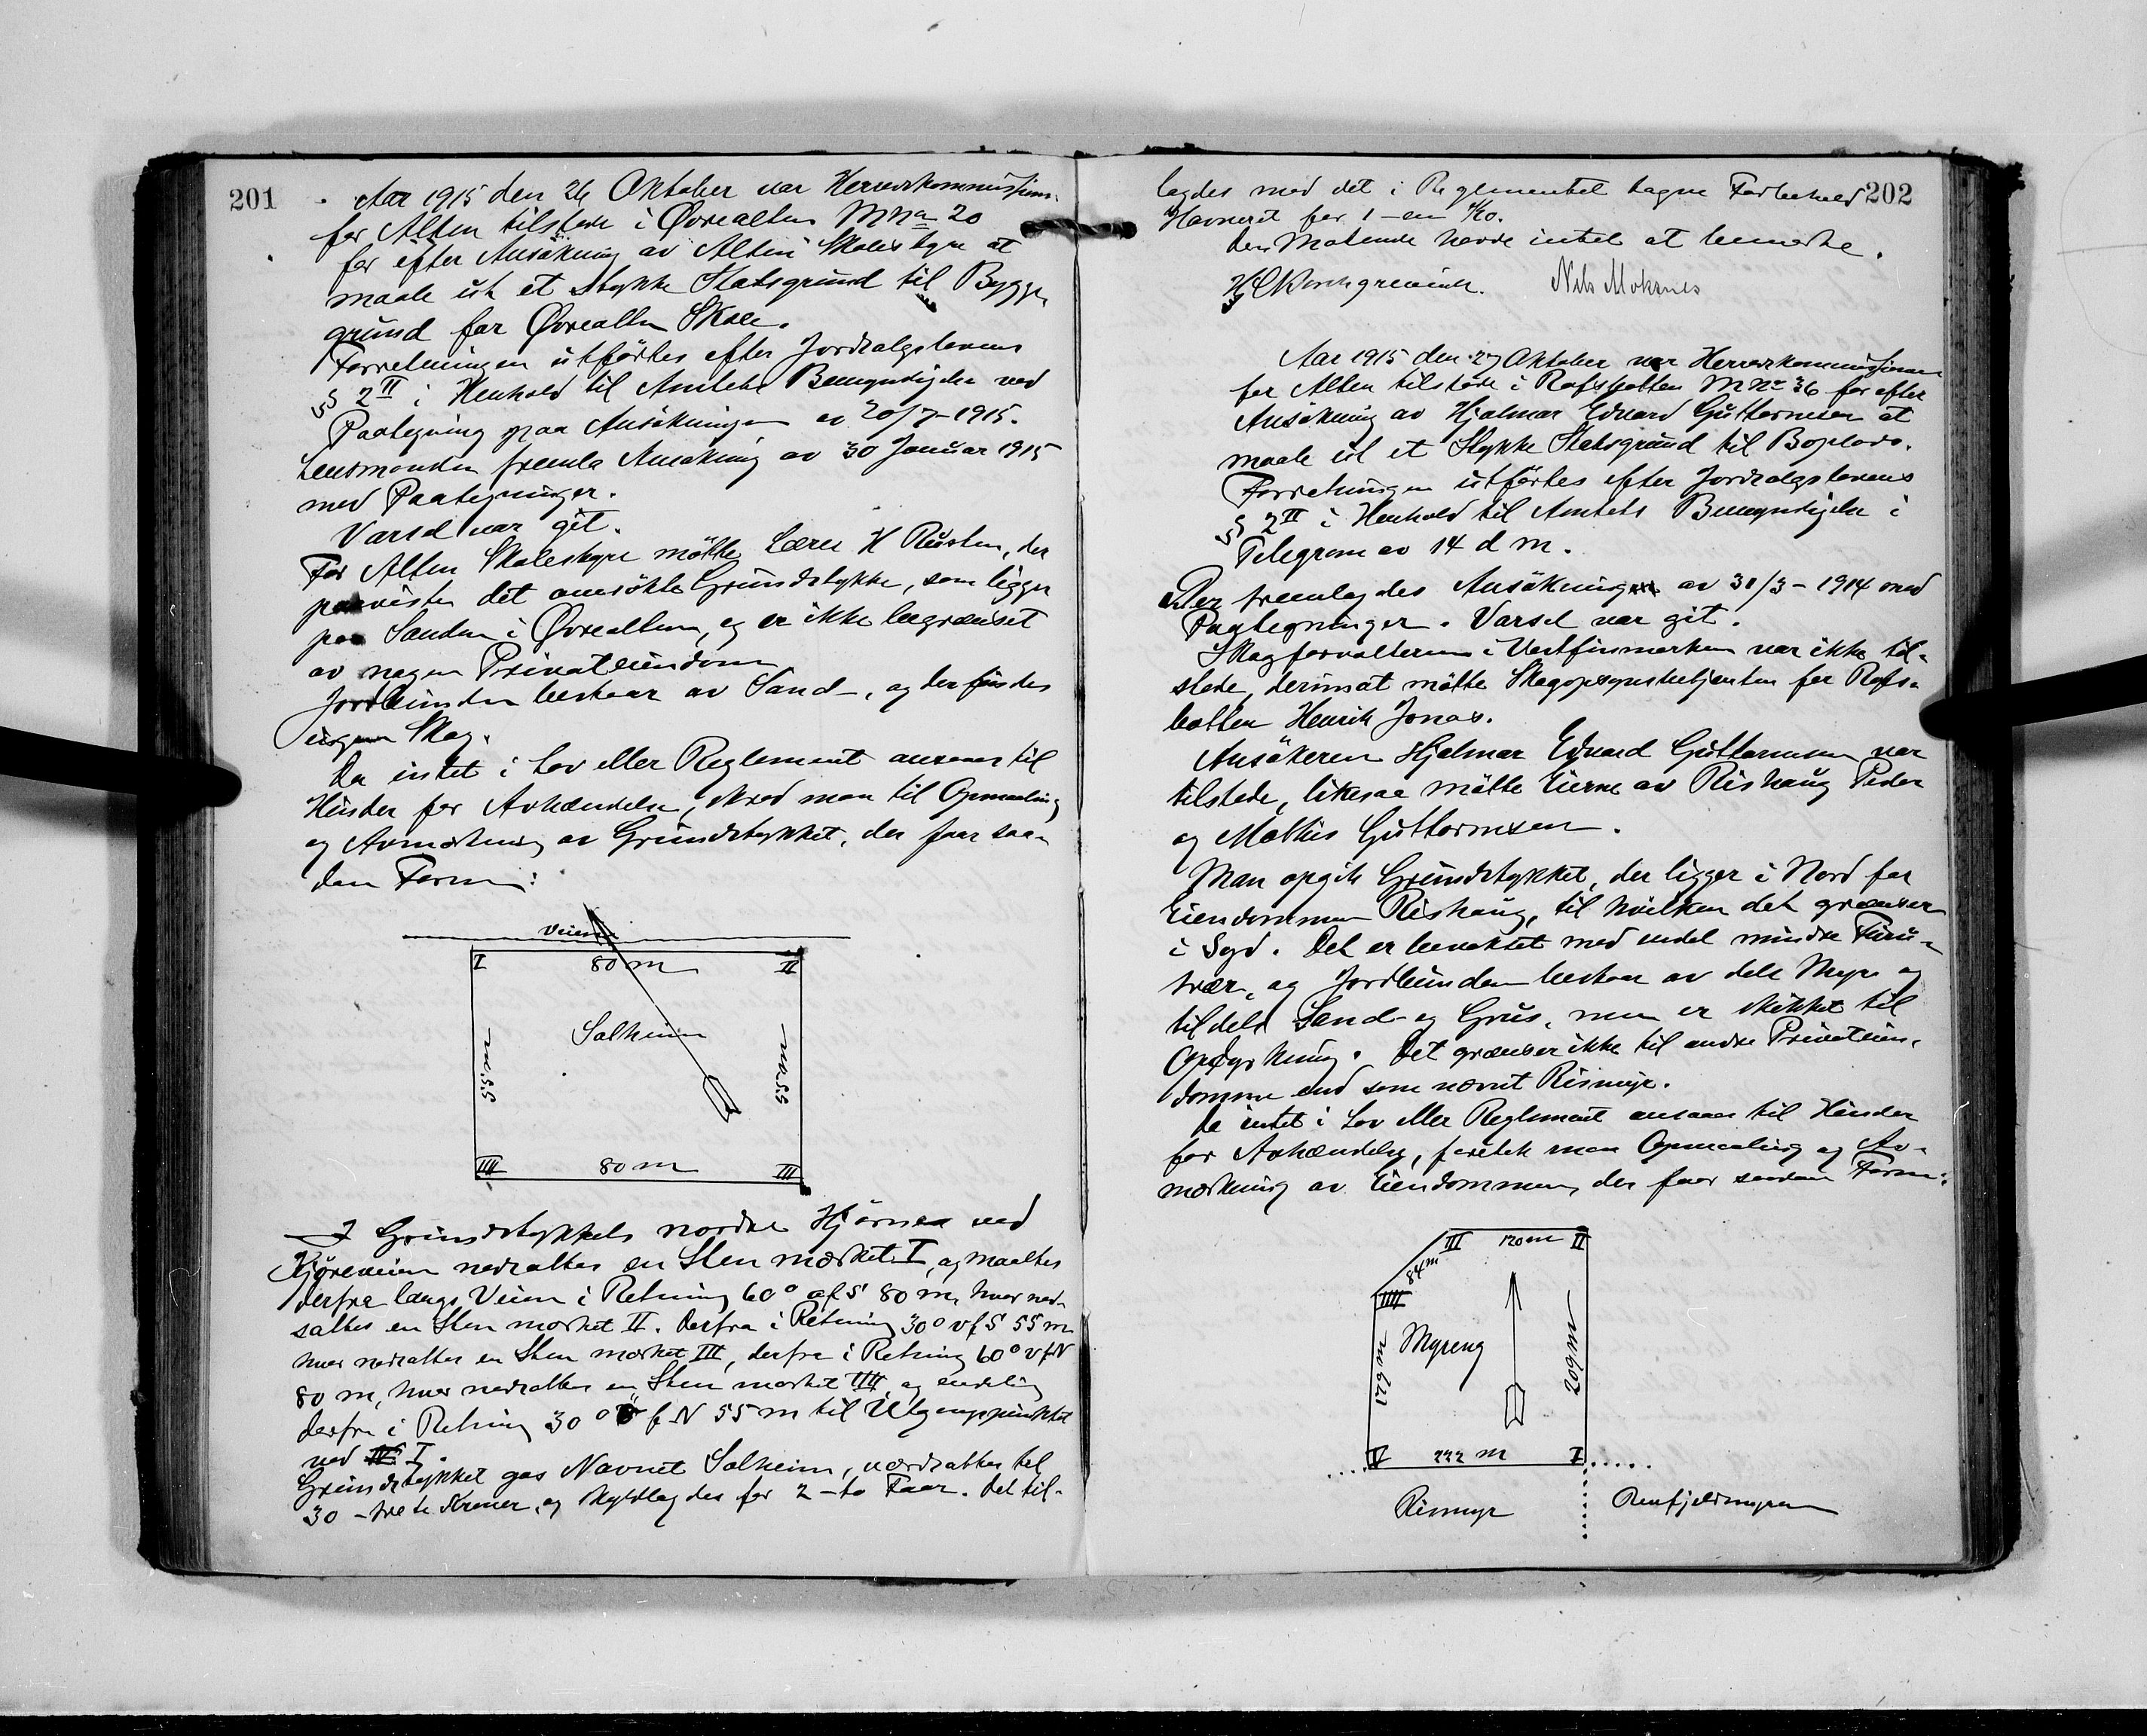 201
Aar 1915 den 26 Oktober var Herredskommissionen
for Alten tilstede i Øvrealten M No 20
for efter Ansökning av Alten Skolestyre at
maale ut et Stykke Statsgrund til Bygge-
grund for Øvrealten Skole.
Forretningen utförtes efter Jordsalgslovens
§ 2 II i Henhold til Amtets Bemyndigelse ved
Paategning paa Ansökningen av 20/7-1915.
Lensmanden fremla Ansökning av 30 Januar 1915
med Paategninger.
Varsel var git.
For Alten Skolestyre mötte Lærer H Rusten, der
paaviste det ansökte Grundstykke, som ligger
paa Sanden i Øvrealten, og er ikke begrænset
av nogen Privateiendom
Jordbunden bestaar av Sand-, og der findes
ingen Skog.
Da intet i Lov eller Reglement ansaaes til
Hinder for Avhændelse, skred man til Opmaaling
og Avmerkning av Grundstykket, der faar saa-
dan Form:
Veien
I 80 m II
Solheim
55 m 55 m
IIII 80 m III
I Grundstykkets nordre Hjörne ved
Kjöreveien nedsattes en Sten merket I, og maaltes
derfra langs Veien i Retning 60° ø f S 80 m, hvor ned-
sattes en Sten merket II. Derfra i Retning 30° v f S 55 m
hvor nedsattes en Sten merket III, derfra i Retning 60° v f N
80 m, hvor nedsattes en Sten merket IIII, og endelig
derfra i Retning 30° ö f N 55 m til Utgangspunktet
ved I.
Grundstykket gas Navnet Solheim, værdsattes til
30 - treti Kroner, og skyldlagdes for 2 - to Faar. Det til-
202
lagdes med det i Reglementet tagne Forbehold
Havneret for 1 - en Ko.
Den Mötende havde intet at bemerke.
Nils Moksnes
Aar 1915 den 27 Oktober var Herredskommissionen
for Alten tilstede i Rafsbotten M No 36 for efter
Ansökning av Hjalmar Edvard Guttormsen at
maale ut et Stykke Statsgrund til Boplads.
Forretningen utförtes efter Jordsalgslovens
§ 2 II i Henhold til Amtets Bemyndigelse i
Telegram av 14 d m.
Der fremlagdes Ansökning av 31/3 - 1914 med
Paategninger. Varsel var git.
Skogforvalteren i Vestfinmarken var ikke til-
stede, derimot mötte Skogopsynsbetjenten for Rafs-
botten Henrik Jonas.
Ansökeren Hjalmar Edvard Guttormsen var
tilstede, likesaa mötte Eierne av Rishaug Peder
og Mathis Guttormsen.
Man opgik Grundstykket, der ligger i Nord for
Eiendommen Rishaug, til hvilken det grænser
i Syd. Det er bevokset med endel mindre Furu-
trær, og Jordbunden bestaar av dels Myr og
tildels Sand- og Grus, men er skikket til
Opdyrkning. Det grænser ikke til andre Privateien-
domme end som nævnt Rismyr.
Da intet i Lov eller Reglement ansaaes til Hinder
for Avhændelse, foretok man Opmaaling og Av-
merkning av Eiendommen, der faar saadan Form:
III 120 m II
84 m
IIII
Myreng
129 m 209 m
V 222 m I
Rismyr Renfjeldmyren